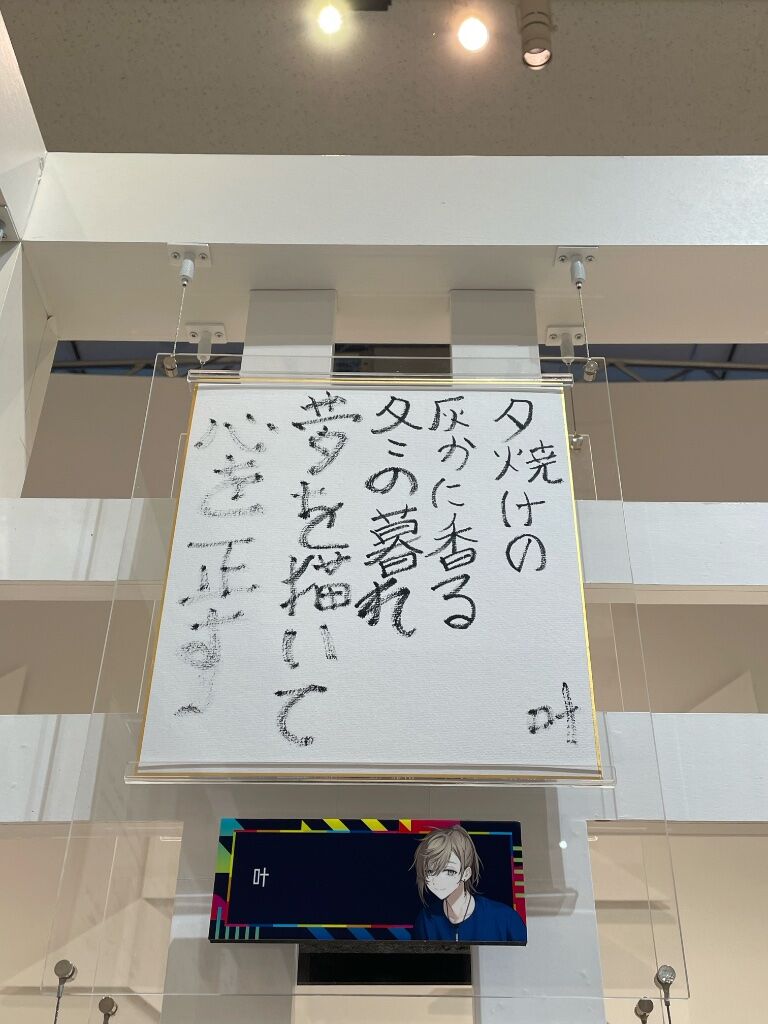 夕焼けの
灰かに香る
冬の暮れ
夢を描いて
心を正す
叶
叶